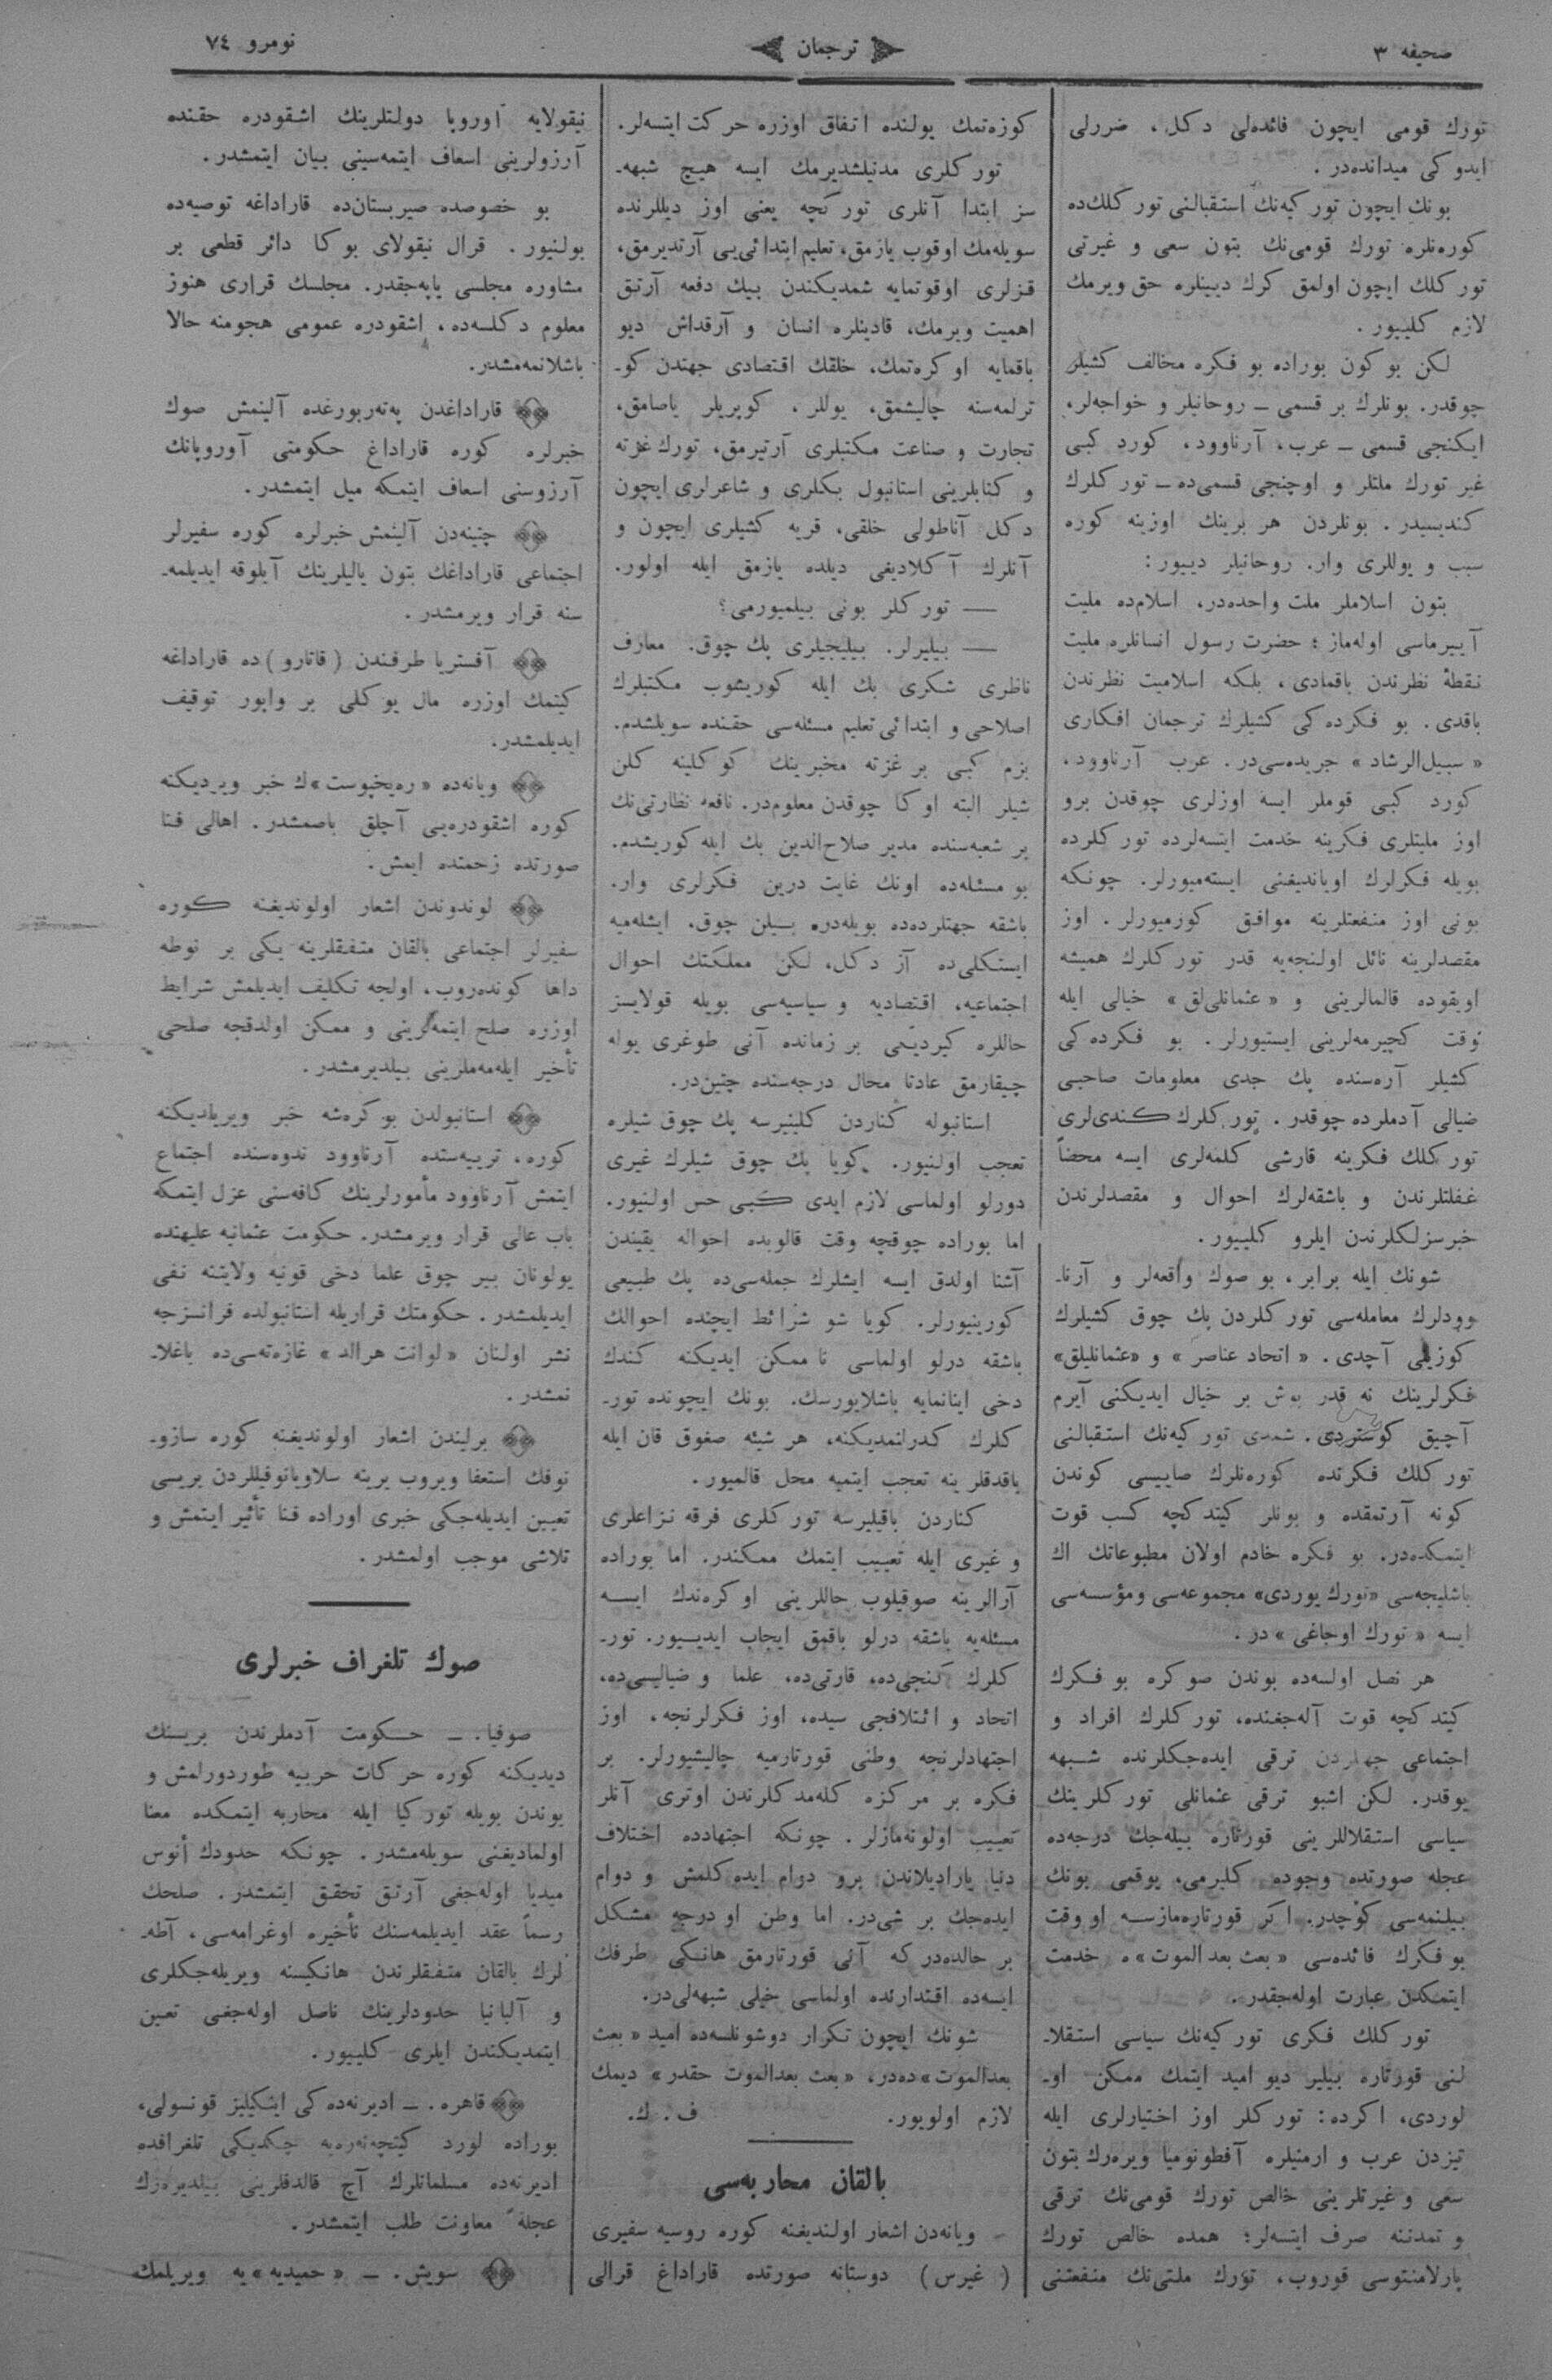 صحیفه ٣
ترجمان
نومرو ٧٤
تورك قومی ایچون فائده‌لی دكل، ضررلی
ایدوكی میدانده‌در.
بونك ایچون توركیه‌نك استقبالنی توركلك‌ده
كوره‌نلره تورك قومی‌نك بتون سعی و غیرتی
توركلك ایچون اولمق كرك دیینلره حق ویرمك
لازم كلییور.
لكن بوكون بوراده بو فكره مخالف كشیلر
چوقدر. بونلرك بر قسمی ــ روحانیلر و خواجه‌لر،
ایكنجی قسمی ــ عرب، آرناوود، كورد كبی
غیر تورك ملتلر و اوچنجی قسمی‌ده ــ توركلرك
كندیسیدر. بونلردن هر برینك اوزینه كوره
سبب و یوللری وار. روحانیلر دییور:
بتون اسلاملر ملت واحده‌در، اسلام‌ده ملیت
آییرماسی اوله‌ماز؛ حضرت رسول انسانلره ملیت
نقطهٔ نظرندن باقمادی، بلكه اسلامیت نظرندن
باقدی. بو فكرده‌كی كشیلرك ترجمان افكاری
«سبیل‌الرشاد» جریده‌سی‌در. عرب آرناوود،
كورد كبی قوملر ایسه اوزلری چوقدن برو
اوز ملیتلری فكرینه خدمت ایتسه‌لرده توركلرده
بویله فكرلرك اویاندیغنی ایسته‌میورلر. چونكه
بونی اوز منفعتلرینه موافق كورمیورلر. اوز
مقصدلرینه نائل اولنجه‌یه قدر توركلرك همیشه
اویقوده قالمالرینی و «عثمانلی‌لق» خیالی ایله
وقت كچیرمه‌لرینی ایستیورلر. بو فكرده‌كی
كشیلر آره‌سنده پك جدی معلومات صاحبی
ضیالی آدملرده چوقدر. توركلرك كندی‌لری
توركلك فكرینه قارشی كلمه‌لری ایسه محضاً
غفلتلرندن و باشقه‌لرك احوال و مقصدلرندن
خبرسزلكلرندن ایلرو كلییور.
شونك ایله برابر، بو صوك واقعه‌لر و آرنا-
وودلرك معامله‌سی توركلردن پك چوق كشیلرك
كوزینی آچدی. «اتحاد عناصر» و «عثمانلیلق»
فكرلرینك نه قدر بوش بر خیال ایدیكنی آیرم
آچیق كوستردی. شمدی توركیه‌نك استقبالنی
توركلك فكرنده كوره‌نلرك صاییسی كوندن
كونه آرتمقده و بونلر كیتدكچه كسب قوت
ایتمكده‌در. بو فكره خادم اولان مطبوعاتك اك
باشلیجه‌سی «تورك یوردی» مجموعه‌سی و مؤسسه‌سی
ایسه «تورك اوجاغی» در.
هر نصل اولسه‌ده بوندن صوكره بو فكرك
كیتدكچه قوت آله‌جغنده، توركلرك افراد و
اجتماعی جهتلردن ترقی ایده‌جكلرنده شبهه
یوقدر. لكن اشبو ترقی عثمانلی توركلرینك
سیاسی استقلاللرینی قورتاره بیله‌جك درجه‌ده
عجله صورتده وجوده كلیرمی، یوقمی بونك
بیلنمه‌سی كوچدر. اكر قورتاره‌مازسه او وقت
بو فكرك فائده‌سی «بعث بعد الموت»ه خدمت
ایتمكدن عبارت اوله‌جقدر.
توركلك فكری توركیه‌نك سیاسی استقلا-
لنی قورتاره بیلیر دیو امید ایتمك ممكن او-
لوردی، اكرده: توركلر اوز اختیارلری ایله
تیزدن عرب و ارمنیلره آفطونومیا ویره‌رك بتون
سعی و غیرتلرینی خالص تورك قومی‌نك ترقی
و تمدننه صرف ایتسه‌لر؛ همده خالص تورك
پارلامنتوسی قوروب، تورك ملتی‌نك منفعتنی
كوزه‌تمك یولنده اتفاق اوزره حركت ایتسه‌لر.
توركلری مدنیلشدیرمك ایسه هیچ شبهه-
سز ابتدا آنلری توركچه یعنی اوز دیللرنده
سویله‌مك اوقوب یازمق، تعلیم ابتدائی‌یی آرتدیرمق،
قزلری اوقوتمایه شمدیكندن بیك دفعه آرتق
اهمیت ویرمك، قادینلره انسان و آرقداش دیو
باقمایه اوكره‌تمك، خلقك اقتصادی جهتدن كو-
ترلمه‌سنه چالیشمق، یوللر، كوپریلر یاصامق،
تجارت و صناعت مكتبلری آرتیرمق، تورك غزته
و كتابلرینی استانبول بكلری و شاعرلری ایچون
دكل آناطولی خلقی، قریه كشیلری ایچون و
آنلرك آكلادیغی دیلده یازمق ایله اولور.
ــ توركلر بونی بیلمیورمی؟
ــ بیلیرلر. بیلیجیلری پك چوق. معارف
ناظری شكری بك ایله كوریشوب مكتبلرك
اصلاحی و ابتدائی تعلیم مسئله‌سی حقنده سویلشدم.
بزم كبی بر غزته مخبرینك كوكلینه كلن
شیلر البته اوكا چوقدن معلوم‌در. نافعه نظارتی‌نك
بر شعبه‌سنده مدیر صلاح‌الدین بك ایله كوریشدم.
بو مسئله‌ده اونك غایت درین فكرلری وار.
باشقه جهتلرده‌ده بویله‌دره بیلن چوق، ایشله‌میه
ایستكلی‌ده آز دكل، لكن مملكتك احوال
اجتماعیه، اقتصادیه و سیاسیه‌سی بویله قولایسز
حاللره كیردیكی بر زمانده آنی طوغری یوله
چیقارمق عادتا محال درجه‌سنده چتین‌در.
استانبوله كناردن كلینیرسه پك چوق شیلره
تعجب اولنیور. كویا پك چوق شیلرك غیری
دورلو اولماسی لازم ایدی كبی حس اولنیور.
اما بوراده چوقچه وقت قالوبده احواله یقیندن
آشنا اولدق ایسه ایشلرك جمله‌سی‌ده پك طبیعی
كورینیورلر. كویا شو شرائط ایچنده احوالك
باشقه درلو اولماسی ناممكن ایدیكنه كندك
دخی اینانمایه باشلایورسك. بونك ایچونده تور-
كلرك كدرلنمدیكنه، هر شیئه صغوق قان ایله
باقدقلرینه تعجب ایتمیه محل قالمیور.
كناردن باقیلیرسه توركلری فرقه نزاعلری
و غیری ایله تعییب ایتمك ممكندر. اما بوراده
آرالرینه صوقیلوب حاللرینی اوكره‌ندك ایسه
مسئله‌یه باشقه درلو باقمق ایجاب ایدییور. تور-
كلرك كنجی‌ده، قارتی‌ده، علما و ضیالیسی‌ده،
اتحاد و ائتلافجی سیده، اوز فكرلرنجه، اوز
اجتهادلرنجه وطنی قورتارمیه چالیشیورلر. بر
فكره بر مركزه كله‌مدكلرندن اوتری آنلر
تعییب اولونه‌مازلر. چونكه اجتهادده اختلاف
دنیا یارادیلاندن برو دوام ایده كلمش و دوام
ایده‌جك بر شی‌در. اما وطن او درجه مشكل
بر حالده‌در كه آنی قورتارمق هانكی طرفك
ایسه‌ده اقتدارنده اولماسی خیلی شبهه‌لی‌در.
شونك ایچون تكرار دوشونلسه‌ده امید «بعث
بعدالموت»ده‌در، «بعث بعدالموت حقدر» دیمك
لازم اولویور.
ف. ك.
بالقان محاربه‌سی
ــ ویانه‌دن اشعار اولندیغنه كوره روسیه سفیری
(غیرس) دوستانه صورتده قاراداغ قرالی
نیقولایه آوروپا دولتلرینك اشقودره حقنده
آرزولرینی اسعاف ایتمه‌سینی بیان ایتمشدر.
بو خصوصده صیربستان‌ده قاراداغه توصیه‌ده
بولنیور. قرال نیقولای بوكا دائر قطعی بر
مشاوره مجلسی یاپه‌جقدر. مجلسك قراری هنوز
معلوم دكلسه‌ده، اشقودره عمومی هجومنه حالا
باشلانمه‌مشدر.
قاراداغدن په‌ته‌ربورغده آلینمش صوك
خبرلره كوره قاراداغ حكومتی آوروپانك
آرزوسنی اسعاف ایتمكه میل ایتمشدر.
چتینه‌دن آلینمش خبرلره كوره سفیرلر
اجتماعی قاراداغك بتون یالیلرینك آبلوقه ایدیلمه-
سنه قرار ویرمشدر.
آفستریا طرفندن (قاتارو)ده قاراداغه
كیتمك اوزره مال یوكلی بر واپور توقیف
ایدیلمشدر.
ویانه‌ده «ره‌یخپوست»ك خبر ویردیكنه
كوره اشقودره‌یی آچلق باصمشدر. اهالی فنا
صورتده زحمتده ایمش.
لوندوندن اشعار اولوندیغنه كوره
سفیرلر اجتماعی بالقان متفقلرینه یكی بر نوطه
داها كونده‌روب، اولجه تكلیف ایدیلمش شرایط
اوزره صلح ایتمه‌لرینی و ممكن اولدقجه صلحی
تأخیر ایله‌مه‌ملرینی بیلدیرمشدر.
استانبولدن بوكره‌شه خبر ویریلدیكنه
كوره، تریه‌ستده آرناوود ندوه‌سنده اجتماع
ایتمش آرناوود مأمورلرینك كافه‌سنی عزل ایتمكه
باب عالی قرار ویرمشدر. حكومت عثمانیه علیهنده
بولونان بیر چوق علما دخی قونیه ولایتنه نفی
ایدیلمشدر. حكومتك قراریله استانبولده فرانسزجه
نشر اولنان «لوانت هرالد» غازه‌ته‌سی‌ده باغلا-
نمشدر.
برلیندن اشعار اولوندیغنه كوره سازو-
نوفك استعفا ویروب یرینه سلاویانوفیللردن بریسی
تعیین ایدیله‌جكی خبری اوراده فنا تأثیر ایتمش و
تلاشی موجب اولمشدر.
صوك تلغراف خبرلری
صوفیا. ــ حكومت آدملرندن برینك
دیدیكنه كوره حركات حربیه طوردورلمش و
بوندن بویله توركیا ایله محاربه ایتمكده معنا
اولمادیغنی سویله‌مشدر. چونكه حدودك أنوس
میدیا اوله‌جغی آرتق تحقق ایتمشدر. صلحك
رسماً عقد ایدیلمه‌سنك تأخیره اوغرامه‌سی، آطه-
لرك بالقان متفقلرندن هانكیسنه ویریله‌جكلری
و آلبانیا حدودلرینك ناصل اوله‌جغی تعین
ایتمدیكندن ایلری كلییور.
قاهره. ــ ادیرنه‌ده‌كی اینكیلیز قونسولی،
بوراده لورد كیتچه‌نه‌ره‌یه چكدیكی تلغرافده
ادیرنه‌ده مسلمانلرك آچ قالدقلرینی بیلدیره‌رك
عجلهٔ معاونت طلب ایتمشدر.
سویش. ــ «حمیدیه»یه ویریلمك